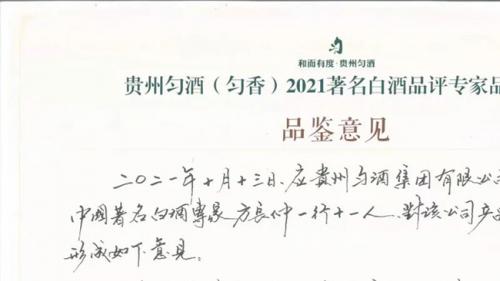 和而有度·贵州匀酒
贵州匀酒（匀香）2021著名白酒品评专家品
品鉴意见
二〇二一年十月十三日，应贵州匀酒集团有限公
中国著名白酒专家方长仲一行十一人，对该公司产
形成如下意见。